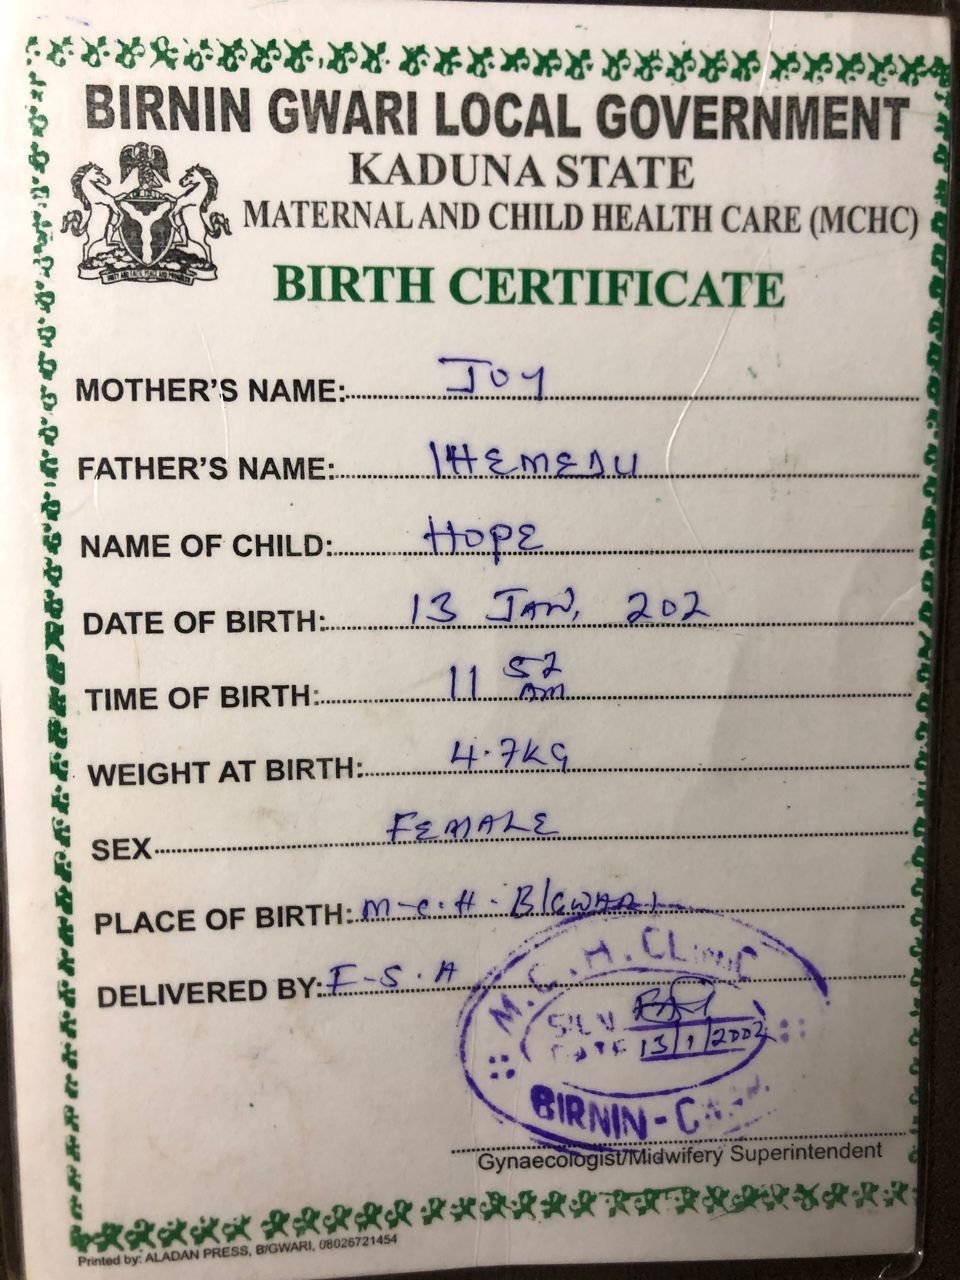 BIRNIN GWARI LOCAL GOVERNMENT
KADUNA STATE
MATERNAL AND CHILD HEALTH CARE (MCHC)
BIRTH CERTIFICATE
MOTHER'S NAME: JOY
FATHER'S NAME: IHEMEDU
NAME OF CHILD: HOPE
DATE OF BIRTH: 13 JAN, 202
TIME OF BIRTH: 11 52 AM
WEIGHT AT BIRTH: 4.7KG
SEX FEMALE
PLACE OF BIRTH: M-C.H. B/GWARI
DELIVERED BY: F-S.A
M.C.H. CLINIC
SIGN
DATE 13/1/2002
BIRNIN-
Gynaecologist/Midwifery Superintendent
Printed by: ALADAN PRESS, B/GWARI, 08026721454